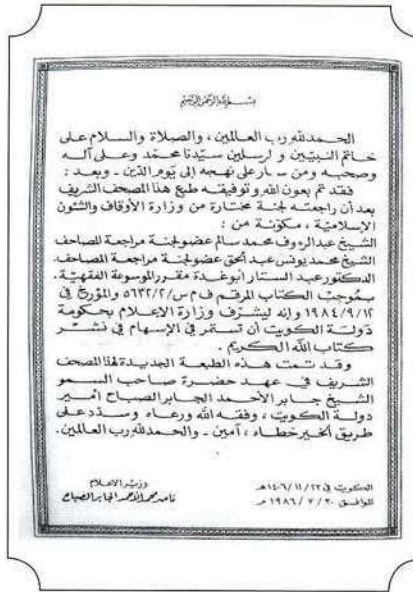 بسم الله الرحمن الرحيم
الحمد لله رب العالمين، والصلاة والسلام على
خاتم النبيّين و لرسلين سيّدنا محمّد وعلى آله
وصحبه ومن سار على نهجه إلى يَوم الدّين - وبعد:
فقد تم بعون الله وتوفيقه طبع هذا المصحف الشريف
بعد أن راجعته لجنة مختارة من وزارة الأوقاف والشئون
الإسلامية، مكوّنة من:
الشيخ عبد الرءوف محمد سالم عضو لجنة مراجعة المصاحف
الشيخ محمد يونس عبد الحق عضو لجنة مراجعة المصاحف
الدكتور عبد الستار أبو غدة مقرر الموسوعة الفقهيّة.
بموجب الكتاب المرقم ف م س/٥٦٣٢/٢ والمؤرخ في
١٩٨٤/٩/١٢ وإنه ليشرّف وزارة الإعلام بحكومة
دَولة الكويت أن تستمر في الإسهام في نشر
كتاب الله الكريم.
وقد تمت هذه الطبعة الجديدة لهذا المصحف
الشريف في عهد حضرة صاحب السمو
الشيخ جابر الأحمد الجابر الصباح أمير
دولة الكويت، وفقه الله ورعاه وسدّد على
طريق الخير خطاه، آمين - والحمد لله رب العالمين.
الكويت في ١٤٠٦/١١/٢٣هـ
الموافق ١٩٨٦/٧/٣٠ م
وزير الاعلام
ناصر محمد الأحمد الجابر الصباح